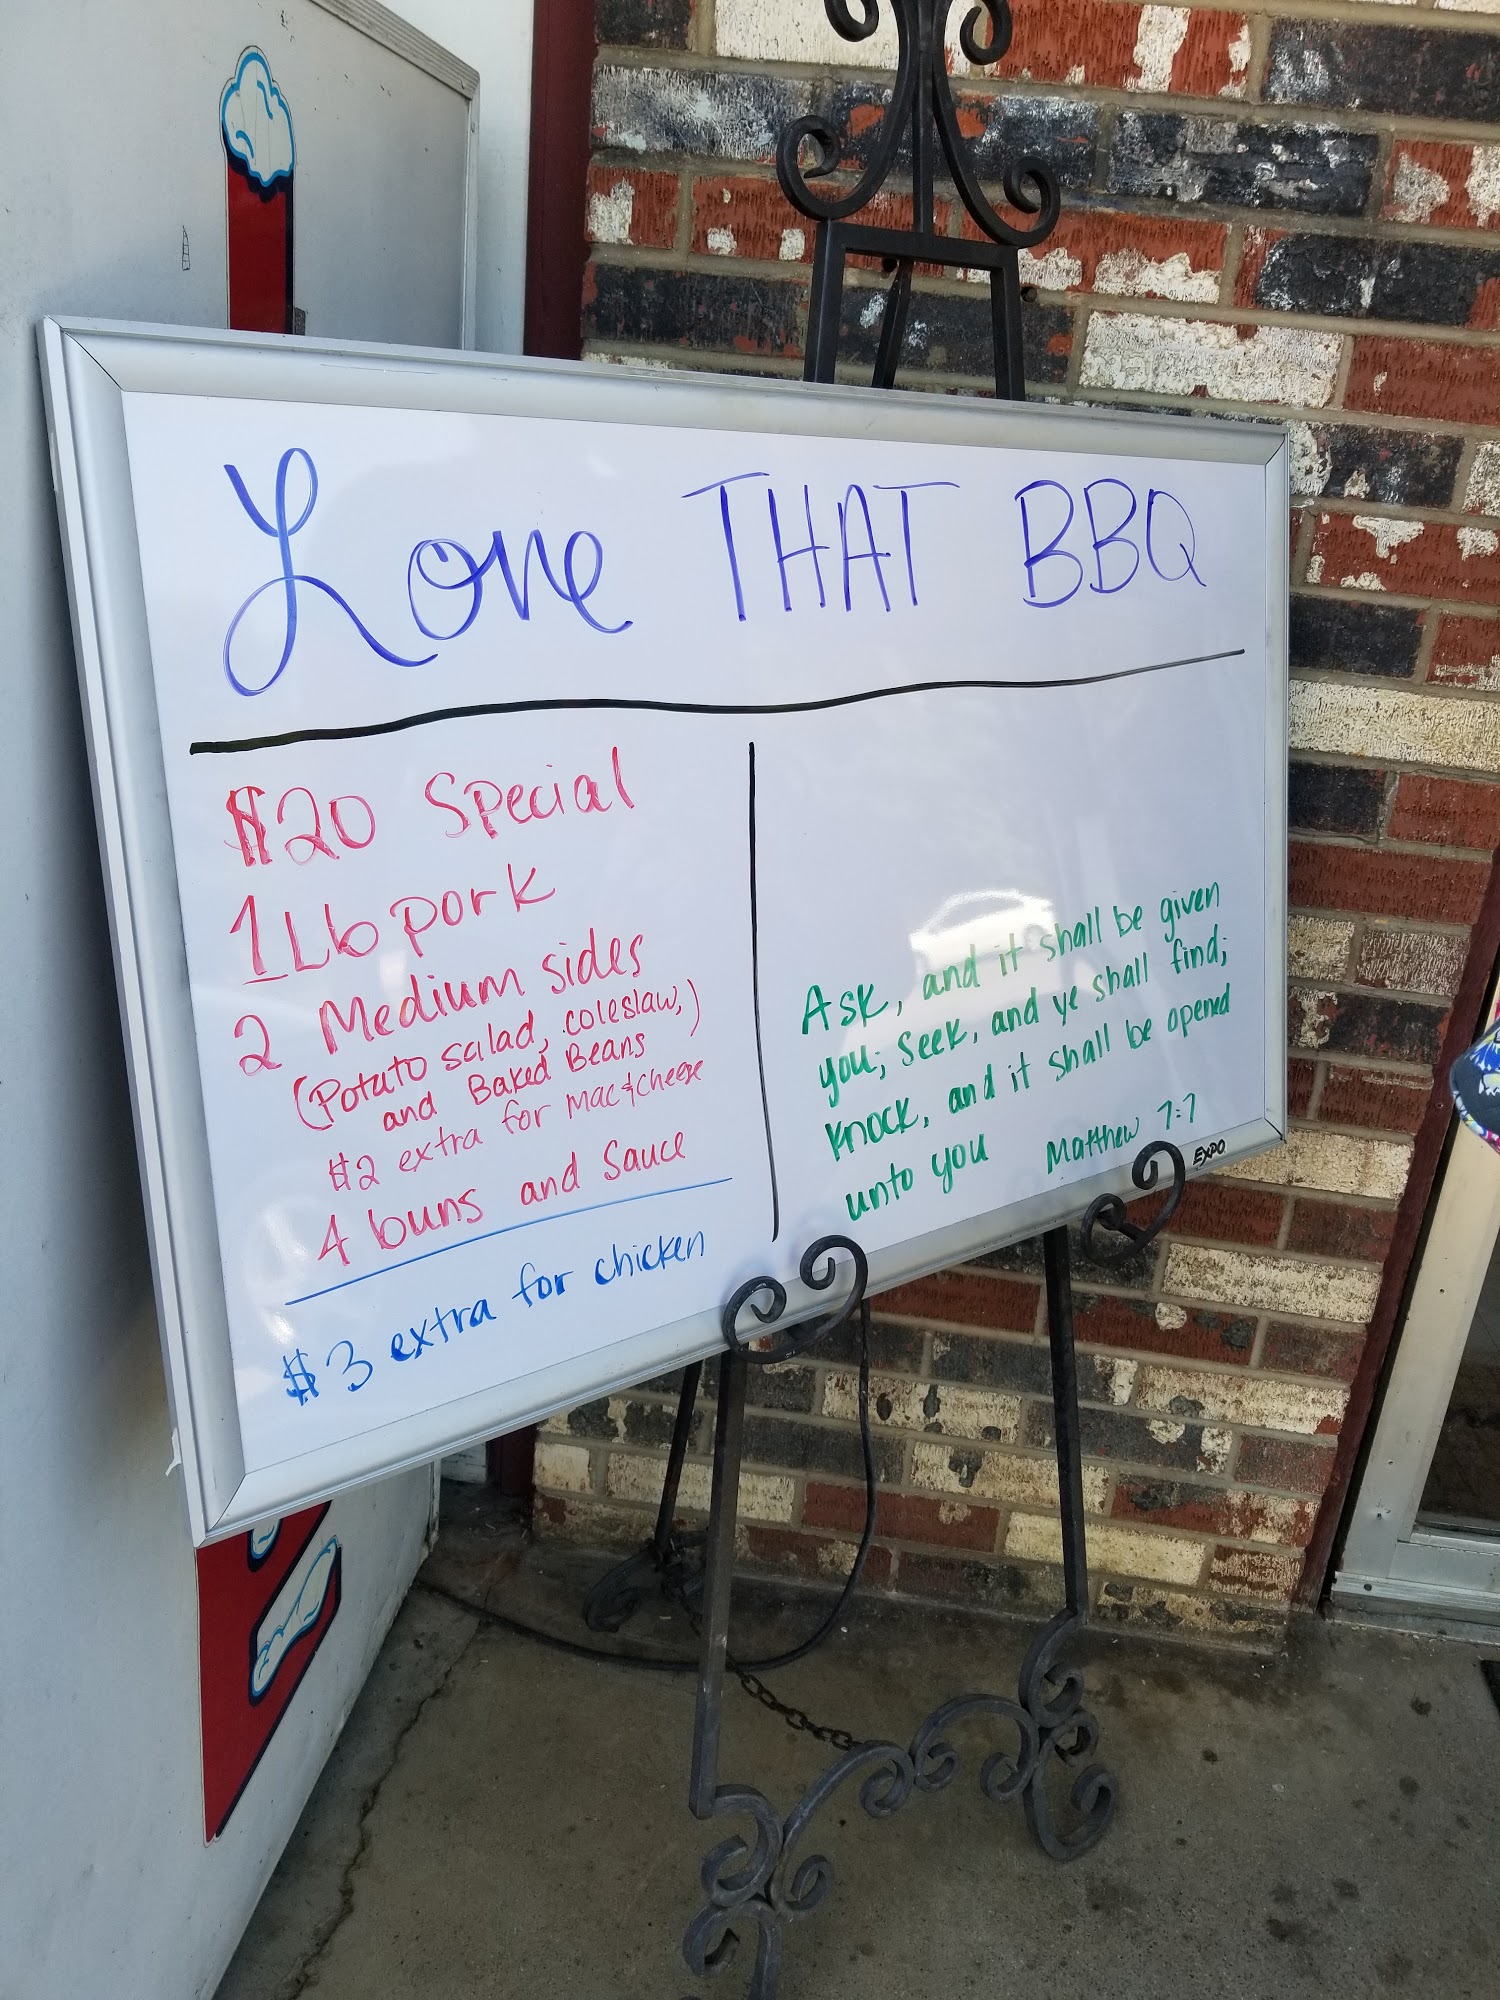 Love THAT BBQ
$20 Special
1Lb pork
2 Medium sides
(Potato salad, coleslaw,)
and Baked Beans
$2 extra for mac & cheese
4 buns and Sauce
$3 extra for chicken
Ask, and it shall be given
you; seek, and ye shall find;
knock, and it shall be opened
unto you Matthew 7:7
EXPO